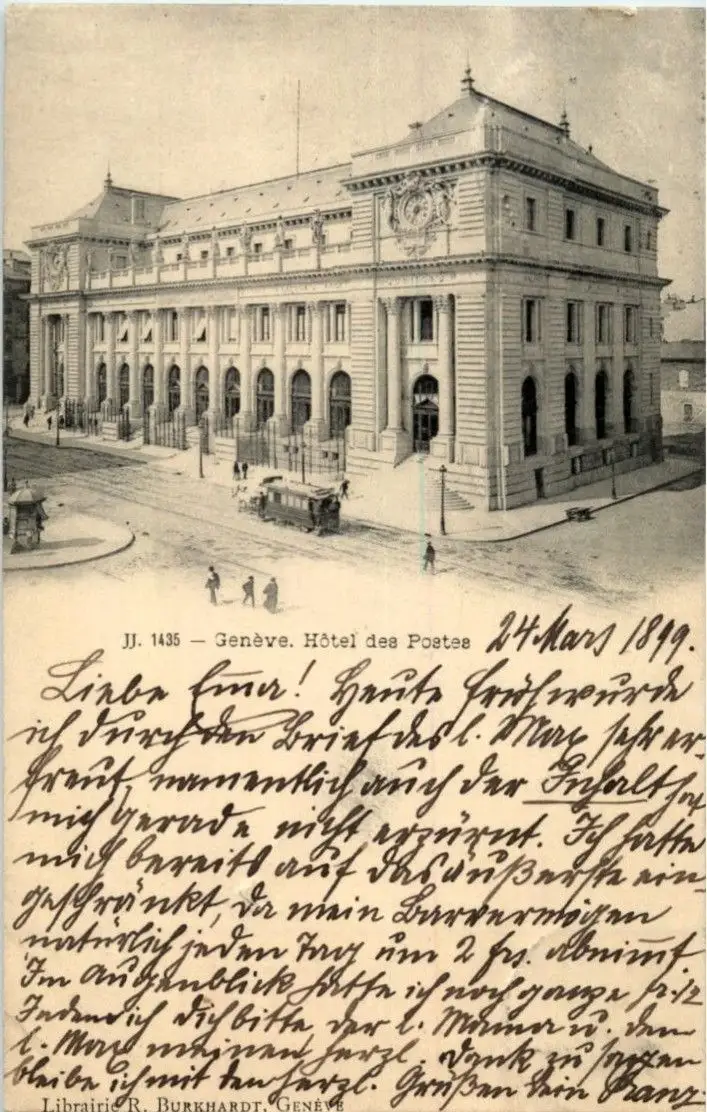 JJ. 1435 — Genève. Hôtel des Postes
24 März 1899.
Liebe Emma! Heute früh wurde
ich durch den Brief des l. Max sehr er-
freut, namentlich auch der Inhalt hat
mich gerade nicht erzürnt. Ich hatte
mich bereits auf das äußerste ein-
geschränkt, da mein Barvermögen
natürlich jeden Tag um 2 frs. abnimmt.
Im Augenblick hatte ich noch ganze fr. 12
Indem ich dich bitte, der l. Mama u. dem
l. Max meinen herzl. Dank zu sagen
bleibe ich mit den herzl. Grüßen dein Franz.
Librairie R. BURKHARDT, GENÈVE